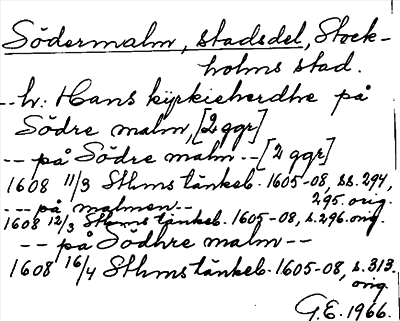 Södermalm, stadsdel, Stock-
holms stad.
--hr: Hans kyrkieherdhe på
Södre malm, [2 ggr]
-- på Södre malm -- [2 ggr]
1608 11/3 Sthms tänkeb. 1605-08, ss. 294,
295. orig.
--- på malmen --
1608 12/3 Sthms tänkeb. 1605-08, s. 296. orig.
-- på Södhre malm --
1608 16/4 Sthms tänkeb. 1605-08, s. 313.
orig.
G.E. 1966.